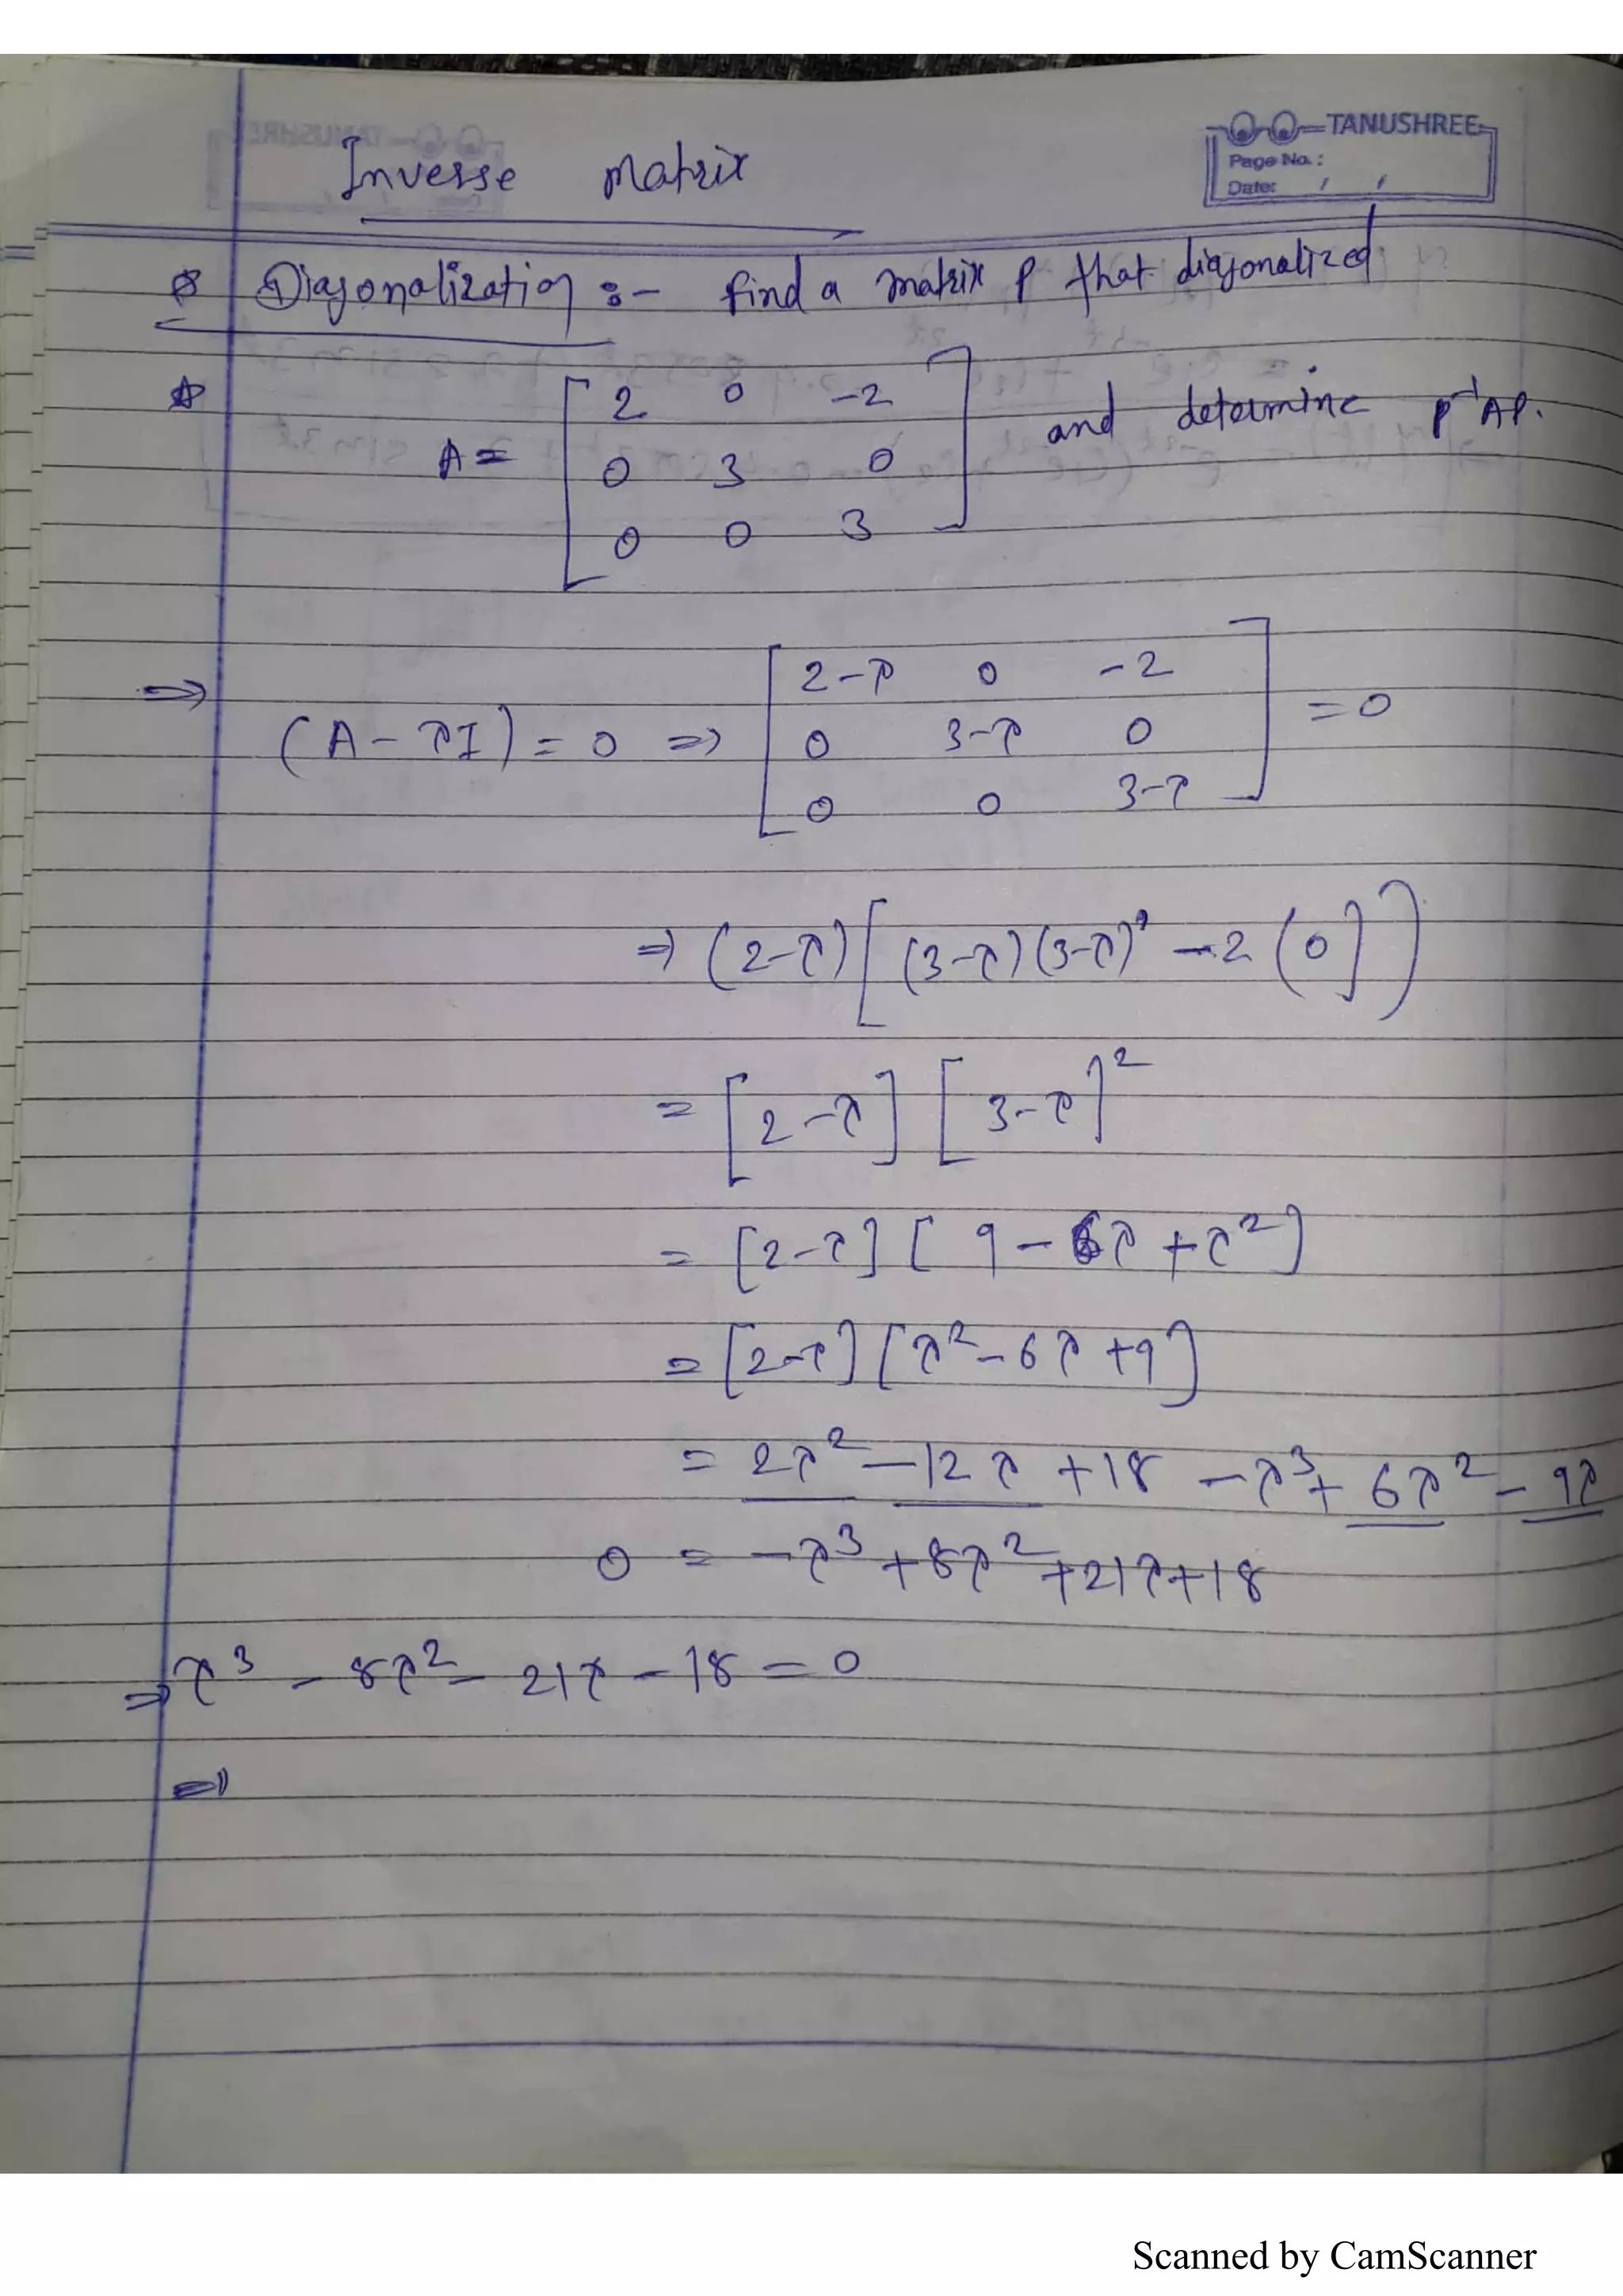 TANUSHREE
Page No.:
Date: / /
Inverse Matrix
Q Diagonalization :- find a matrix P that diagonalized
A = [ 2 0 -2 ; 0 3 0 ; 0 0 3 ] and determine P⁻¹AP.
⇒ (A - λI) = 0 ⇒ [ 2-λ 0 -2 ; 0 3-λ 0 ; 0 0 3-λ ] = 0
⇒ (2-λ) [ (3-λ)(3-λ) - 2 (0] )
= [2-λ] [3-λ]²
= [2-λ] [ 9 - 6λ + λ²]
= [2-λ] [λ² - 6λ + 9]
= 2λ² - 12λ + 18 - λ³ + 6λ² - 9λ
0 = -λ³ + 8λ² + 21λ + 18
⇒ λ³ - 8λ² - 21λ - 18 = 0
⇒
Scanned by CamScanner